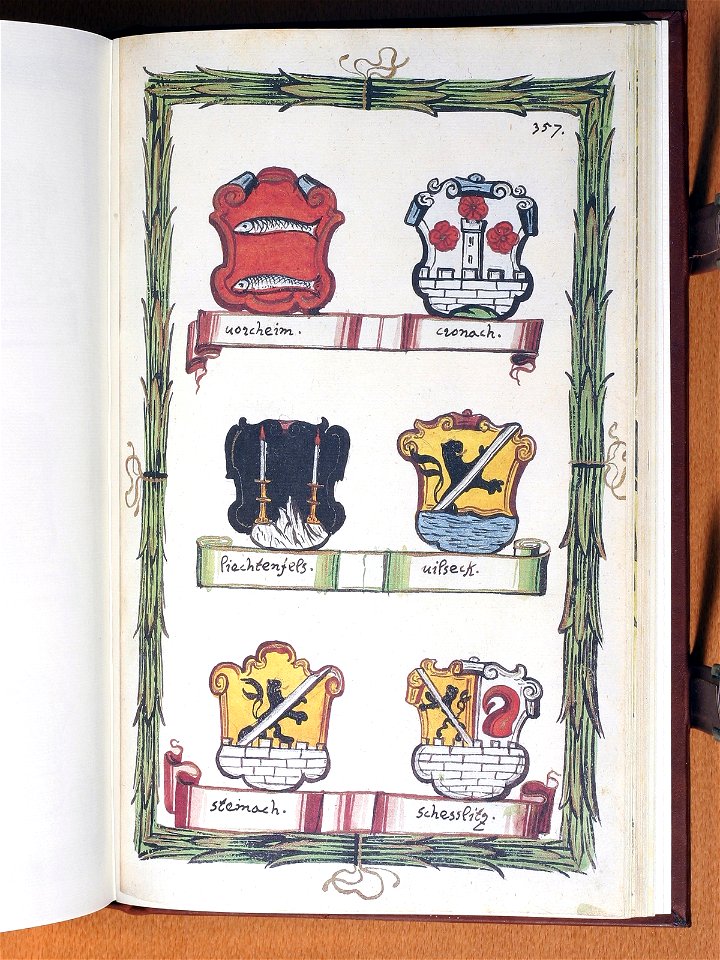 357.
vorcheim.
cronach.
liechtenfels.
vilseck.
steinach.
schesslitz.